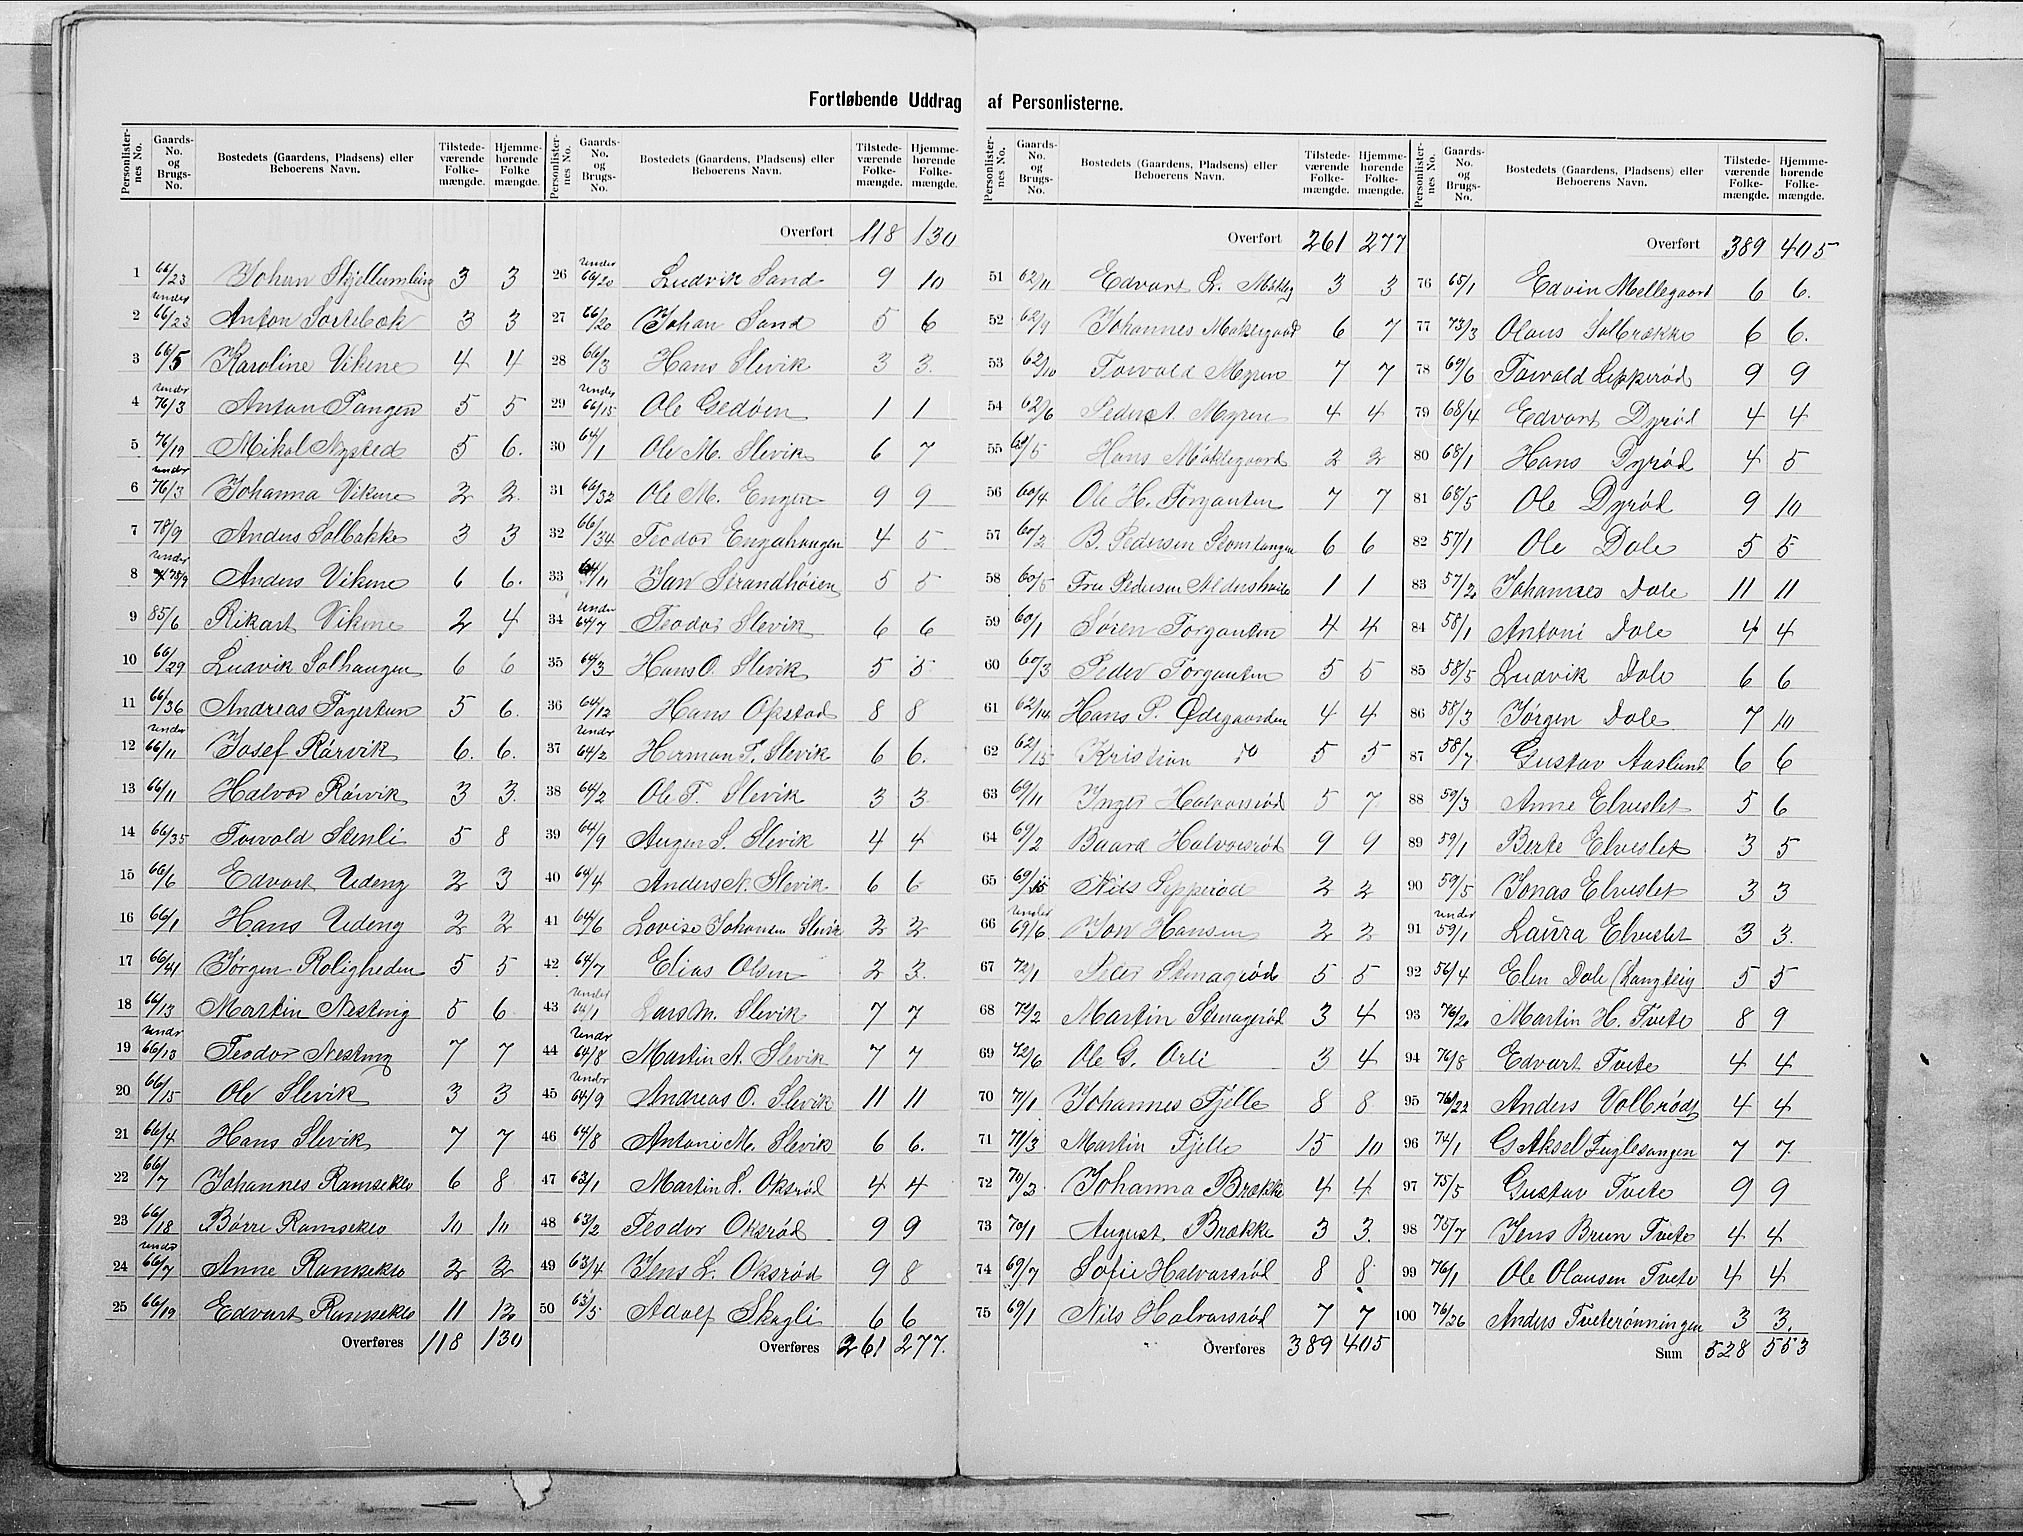 Fortløbende Uddrag af Personlisterne.
Personlisternes No. Gaards-No. og Brugs-No. Bostedets (Gaardens, Pladsens) eller Beboerens Navn. Tilstedeværende Folkemængde. Hjemmehørende Folkemængde.
1 66/23 Johan Skjellumbing 3 3
2 under 66/23 Anton Sortebok 3 3
3 66/5 Karoline Vikene 4 4
4 under 76/3 Anton Tangen 5 5
5 76/19 Mikal Nysted 5 6.
6 under 76/3 Johanna Vikene 2 2.
7 78/9 Anders Solbakke 3 3
8 under 78/9 Anders Vikene 6 6.
9 85/6 Rikart Vikene 2 4
10 66/29 Ludvik Solhaugen 6 6
11 66/36 Andreas Fagertun 5 6.
12 under 66/11 Josef Rørvik 6. 6.
13 66/11 Halvor Rørvik 3 3.
14 66/35 Torvald Stenli 5 8
15 66/6 Edvart Udeng 2 3
16 66/1 Hans Udeng 2 2
17 66/41 Jørgen Roligheden 5 5
18 66/13 Martin Nesteng 5 6
19 under 66/13 Teodor Nesteng 7 7
20 66/15 Ole Slevik 3 3
21 66/4 Hans Slevik 7 7
22 66/7 Johannes Ramseklo 6 8
23 66/18 Børre Ramseklo 10 10
24 under 66/7 Anne Ramseklo 2 2
25 66/19 Edvart Ramseklo 11 12
Overføres 118 130
Personlisternes No. Gaards-No. og Brugs-No. Bostedets (Gaardens, Pladsens) eller Beboerens Navn. Tilstedeværende Folkemængde. Hjemmehørende Folkemængde.
Overført 118 130
26 under 66/20 Ludvik Sand 9 10
27 66/20 Johan Sand 5 6
28 66/3 Hans Slevik 3 3.
29 under 66/15 Ole Gedøen 1 1
30 64/1 Ole M. Slevik 6 7
31 66/32 Ole M. Engen 9 9
32 66/34 Teodor Engahaugen 4 5
33 64/11 Jan Strandhøien 5 5
34 under 64/7 Teodor Slevik 6 6
35 64/3 Hans O. Slevik 5 5
36 64/12 Hans Opstad 8 8
37 under 64/2 Herman T. Slevik 6 6.
38 64/2 Ole T. Slevik 3 3
39 64/9 Augen S. Slevik 4 4
40 64/4 Anders N. Slevik 6 6
41 64/6 Lovise Johansen Slevik 2 2
42 64/7 Elias Olsen 2 3.
43 under 64/1 Lars M. Slevik 7 7
44 under 64/8 Martin A. Slevik 7 7
45 under 64/9 Andreas O. Slevik 11 11
46 64/8 Antoni M. Slevik 6 6.
47 63/1 Martin L. Oksrød 4 4
48 63/2 Teodor Oksrød 9 9
49 63/4 Jens L. Oksrød 9 8
50 63/5 Adolf Skagli 6 6
Overføres 261 277.
Personlisternes No. Gaards-No. og Brugs-No. Bostedets (Gaardens, Pladsens) eller Beboerens Navn. Tilstedeværende Folkemængde. Hjemmehørende Folkemængde.
Overført 261 277
51 62/11 Edvart L. 3 3
52 62/9 Johannes Moklegaard 6 7
53 62/10 Torvald Myren 7 7
54 62/6 Peder A Myren 4 4
55 62/5 Hans Moklegaard 2 2
56 60/4 Ole H. Torgauten 7 7
57 60/2 B. Pedersen Stomtangen 6 6
58 60/5 Fru Pedersen Aldershvile 1 1
59 60/1 Søren Torgauten 4 4
60 60/3 Peder Torgauten 5 5
61 62/14 Hans P. Ødegaarden 4 4
62 62/15 Kristian do 5 5
63 69/11 Inger Halvarsrød 5 7
64 69/2 Baard Halvorsrød 9 9
65 69/15 Nils Lepperød 2 2
66 under 69/6 Jon Hansen 2 2
67 72/1 Peder Stenagrød 5 5
68 72/2 Martin Stenagerød 3 4
69 72/6 Ole G. Orli 3 4
70 71/1 Johannes Fjelle 8 8
71 71/3 Martin Fjelle 15 10
72 70/2 Johanna Brække 4 4
73 70/1 August Brække 3 3.
74 69/7 Sofie Halvarsrød 8 8
75 69/1 Nils Halvarsrød 7 7
Overføres 389 405
Personlisternes No. Gaards-No. og Brugs-No. Bostedets (Gaardens, Pladsens) eller Beboerens Navn. Tilstedeværende Folkemængde. Hjemmehørende Folkemængde.
Overført 389 405
76 65/1 Edvin Mellegaard 6 6.
77 73/3 Olaus Solbrække 6 6.
78 69/6 Torvald Lepperød 9 9
79 68/4 Edvart Dyrød 4 4
80 68/1 Hans Dyrød 4 5
81 68/5 Ole Dyrød 9 10
82 57/1 Ole Dale 5 5
83 57/2 Johannes Dale 11 11
84 58/1 Antoni Dale 4 4
85 58/5 Ludvik Dale 6 6
86 58/3 Jørgen Dale 7 10
87 58/7 Gustav Aaslund 6 6
88 59/3 Anne Elveslet 5 6
89 59/1 Berte Elveslet 3 5
90 59/5 Jonas Elveslet 3 3
91 under 59/1 Laura Elveslet 3 3.
92 56/4 Elen Dale (Langteig 5 5
93 76/20 Martin H. Tvete 8 9
94 76/8 Edvart Tvete 4 4
95 76/22 Anders Volbrød 4 4
96 74/1 G Aksel Fuglesangen 7 7
97 75/5 Gustav Tvete 9 9
98 75/7 Jens Brun Tvete 4 4
99 76/1 Ole Olausen Tvete 4 4
100 76/26 Anders Tveterønningen 3 3.
Sum 528 553